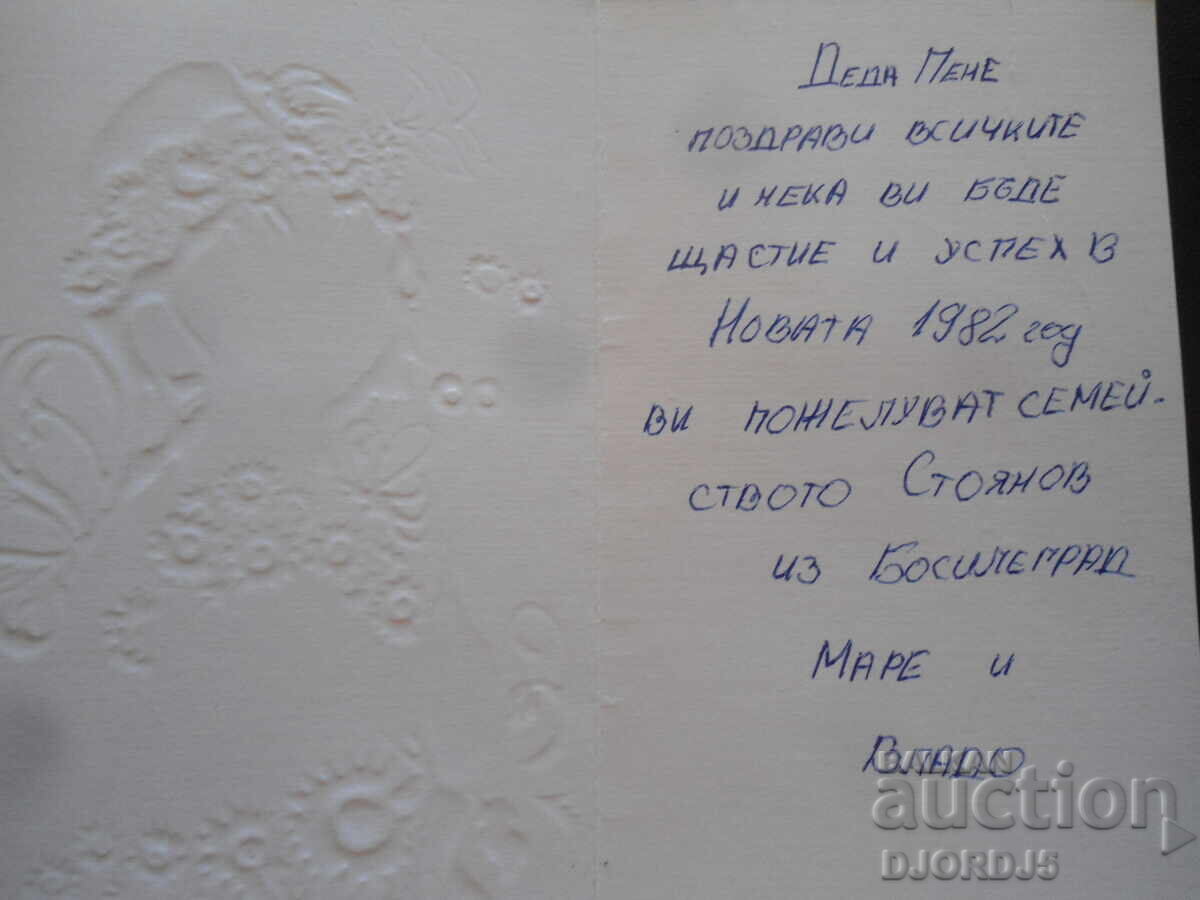 Деда Пене
поздрави всичките
и нека ви бъде
щастие и успех в
Новата 1982 год
ви пожелуват семей-
ството Стоянов
из Босилеград
Маре и
Владо
BALKAN
auction
DJORDJ5